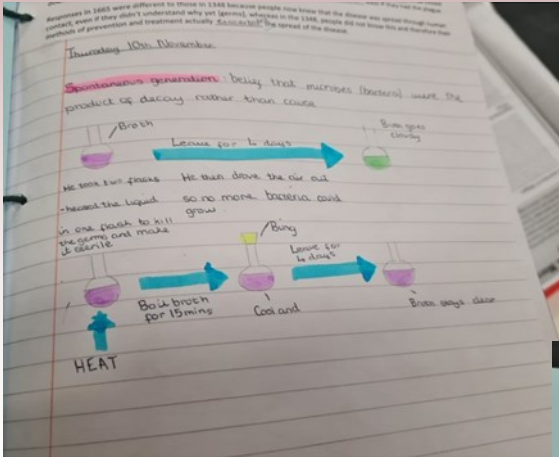 Responses in 1665 were different to those in 1348 because people now knew that the disease was spread through human
contact, even if they didn't understand why yet (germs), whereas in the 1348, people did not know this and therefore their
methods of prevention and treatment actually the spread of the disease.
Thursday 10th November
Spontaneous generation: belief that microbes (bacteria) were the
product of decay rather than cause
Broth
Leave for 4 days
Broth goes
cloudy
He took two flasks
-heated the liquid
in one flask to kill
the germs and make
it sterile
He then drove the air out
so no more bacteria could
grow.
Bung
Leave for
4 days
Boil broth
for 15mins
Cool and
Broth stays clear
HEAT